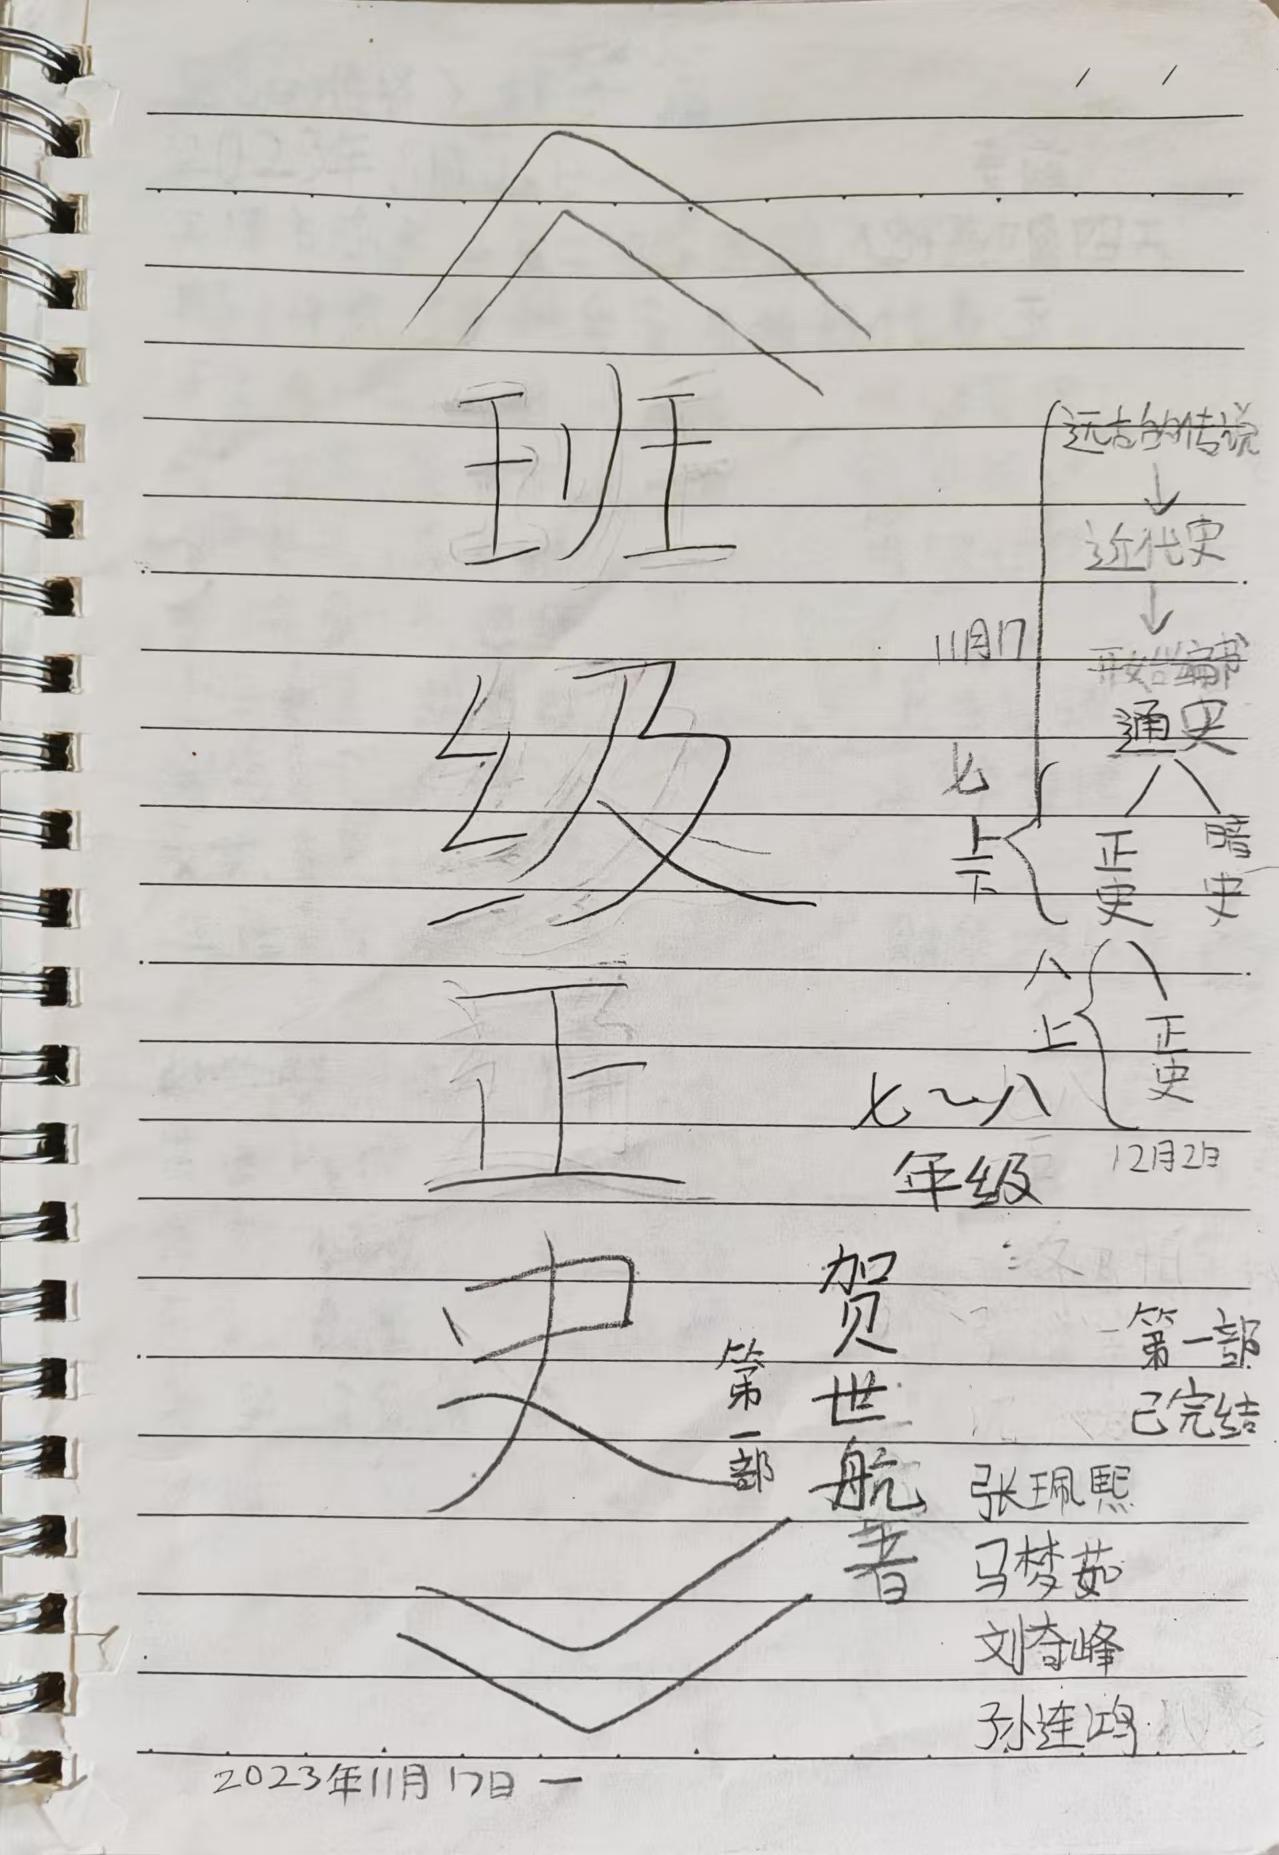 《
班
级
正
史
》
第一部
贺世航著
七~八
年级
远古的传说
↓
近代史
↓
开始编书
通史
正史
暗史
11月17
七
上
下
八
上
正史
12月2日
第一部
已完结
张珮熙
马梦茹
刘奇峰
孙连鸿
2023年11月17日 一